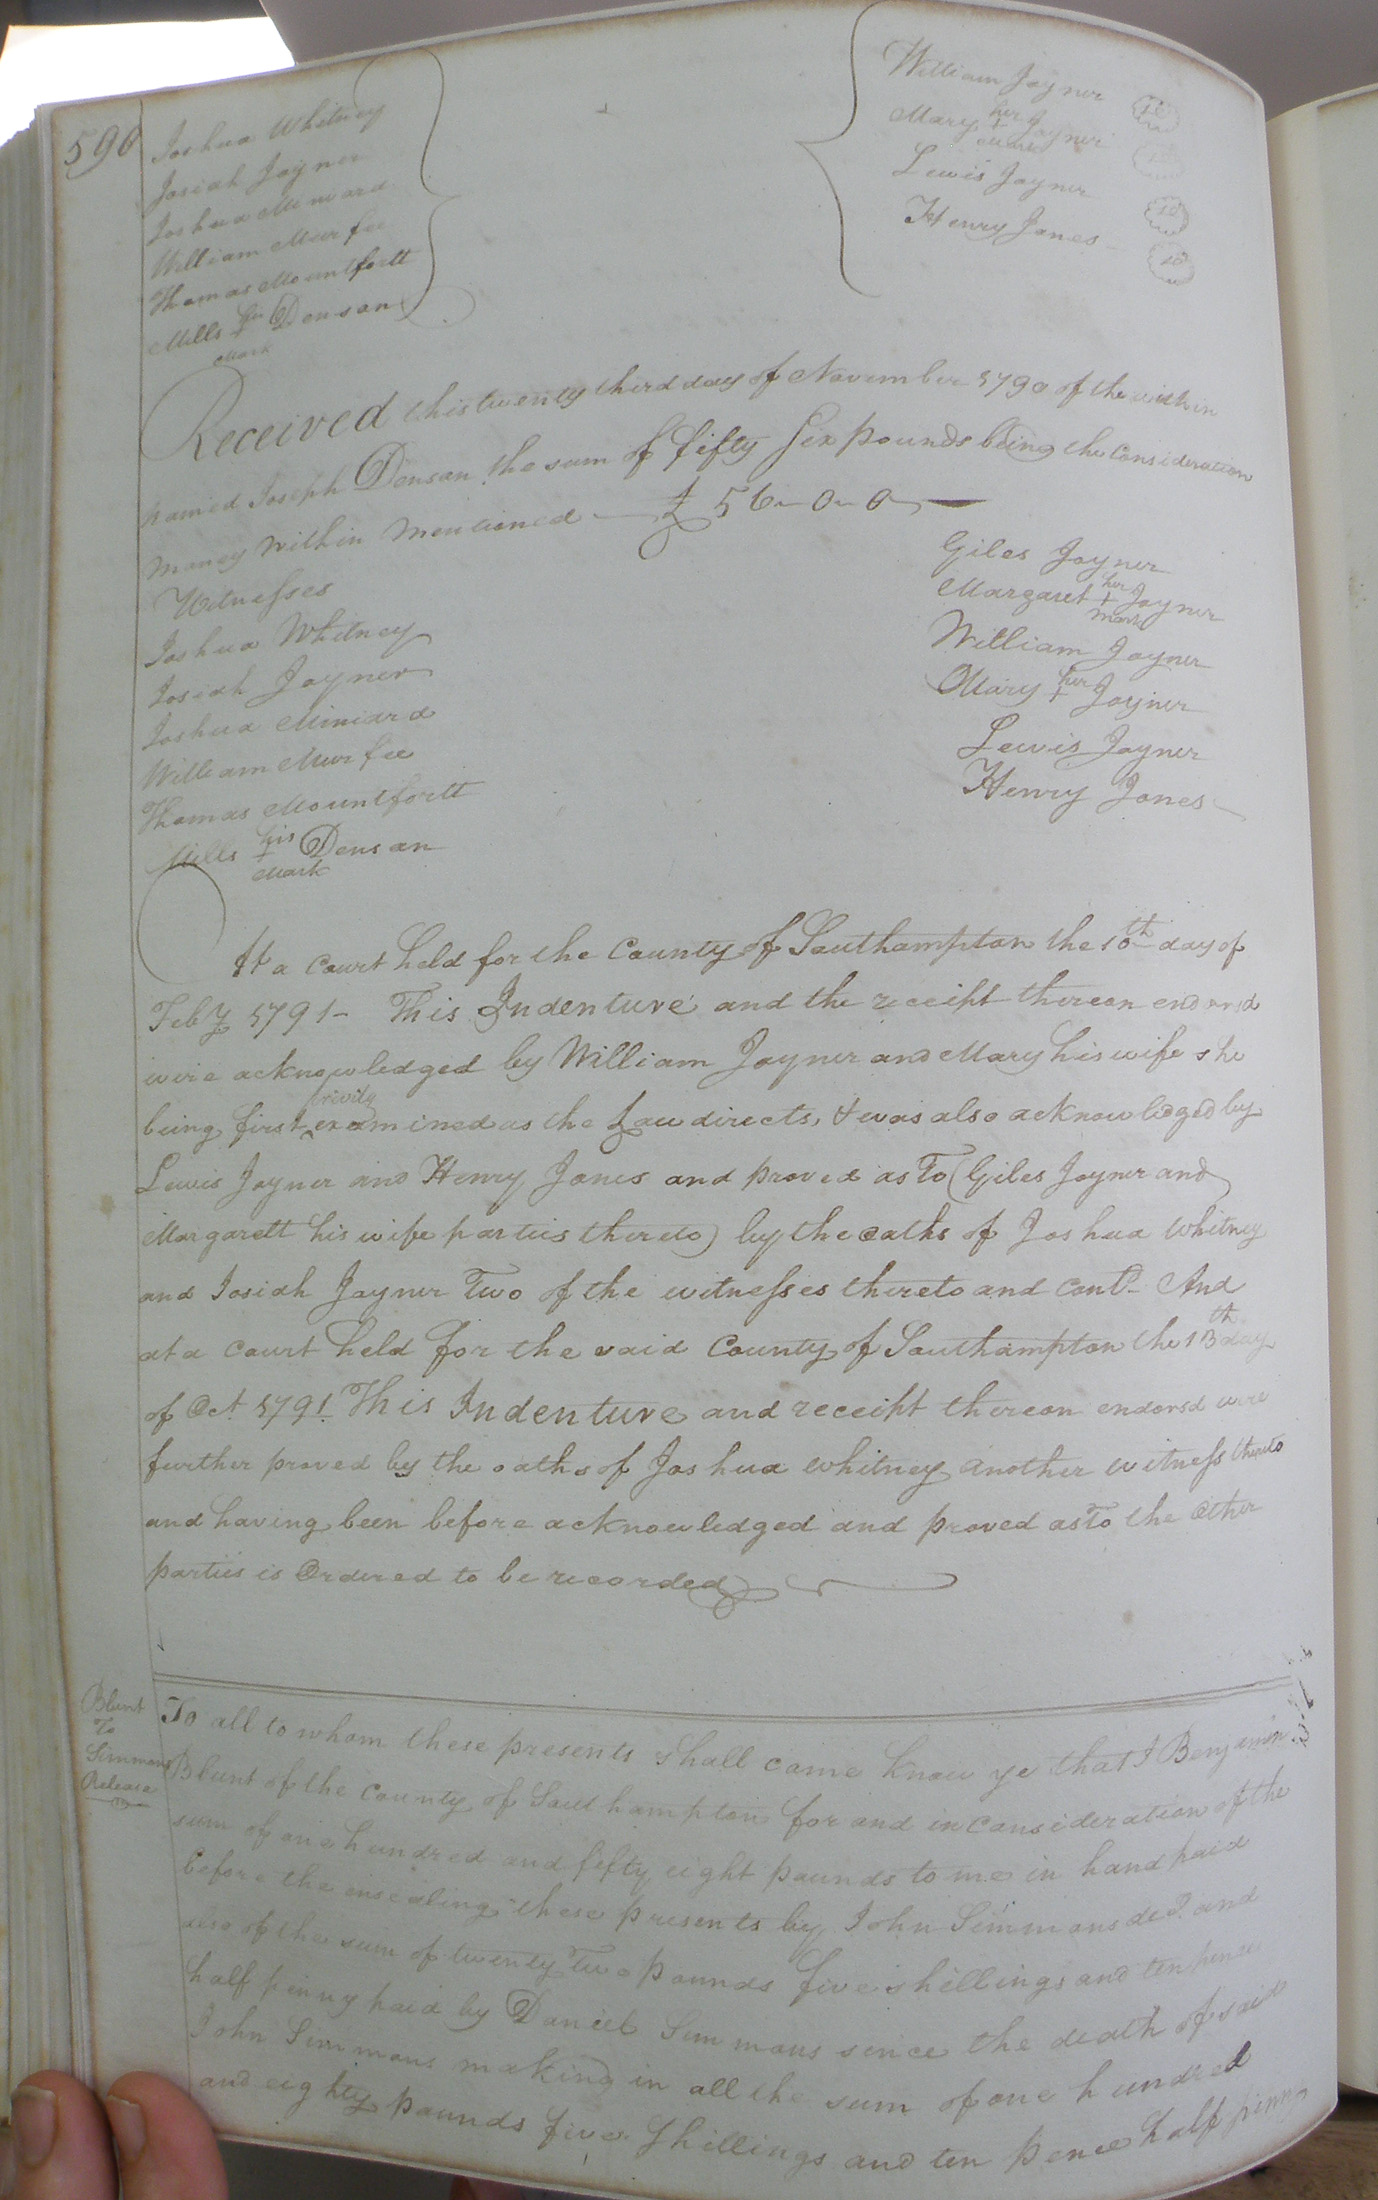 590
Joshua Whitney
Josiah Joyner
Joshua Miniard
William Murfee
Thomas Mountfortt
Mills his + Denson
Mark
William Joyner
Mary her + Joyner
mark
Lewis Joyner
Henry Jones
Received this twenty third day of November 1790 of the within
named Joseph Denson the sum of fifty six pounds being the Consideration
money within mentioned — £ 56-0-0
Witnesses
Joshua Whitney
Josiah Joyner
Joshua Miniard
William Murfee
Thomas Mountfortt
Mills his + Denson
Mark
Giles Joyner
Margaret her + Joyner
mark
William Joyner
Mary her + Joyner
Lewis Joyner
Henry Jones
At a Court held for the County of Southampton the 10th day of
Feby 1791 - This Indenture and the receipt thereon endorsd
were acknowledged by William Joyner and Mary his wife she
being first privily examined as the Law directs, & was also acknowledged by
Lewis Joyner and Henry Jones and proved as To (Giles Joyner and
Margarett his wife parties thereto) by the oaths of Joshua Whitney
and Josiah Joyner Two of the witnesses thereto and contd. And
at a Court held for the said County of Southampton the 13th day
of Oct 1791. This Indenture and receipt thereon endorsd were
further proved by the oaths of Joshua Whitney another witness thereto
and having been before acknowledged and proved as To the other
parties is Ordered to be recorded
Blunt
To
Simmons
Release
To all to whom these presents shall come know ye that I Benjamin
Blunt of the County of Southampton for and in Consideration of the
sum of one hundred and fifty eight pounds to me in hand paid
before the ensealing these presents by John Simmons decd. and
also of the sum of twenty Two pounds five shillings and ten pence
half penny paid by Daniel Simmons since the death of said
John Simmons making in all the sum of one hundred
and eighty pounds five shillings and ten pence half penny